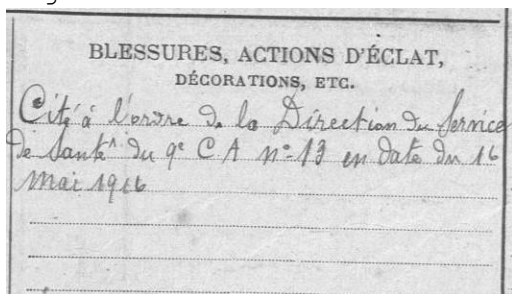 BLESSURES, ACTIONS D'ÉCLAT,
DÉCORATIONS, ETC.
Cité à l'ordre de la Direction du Service
de Santé du 9e C A n°-13 en date du 16
Mai 1916